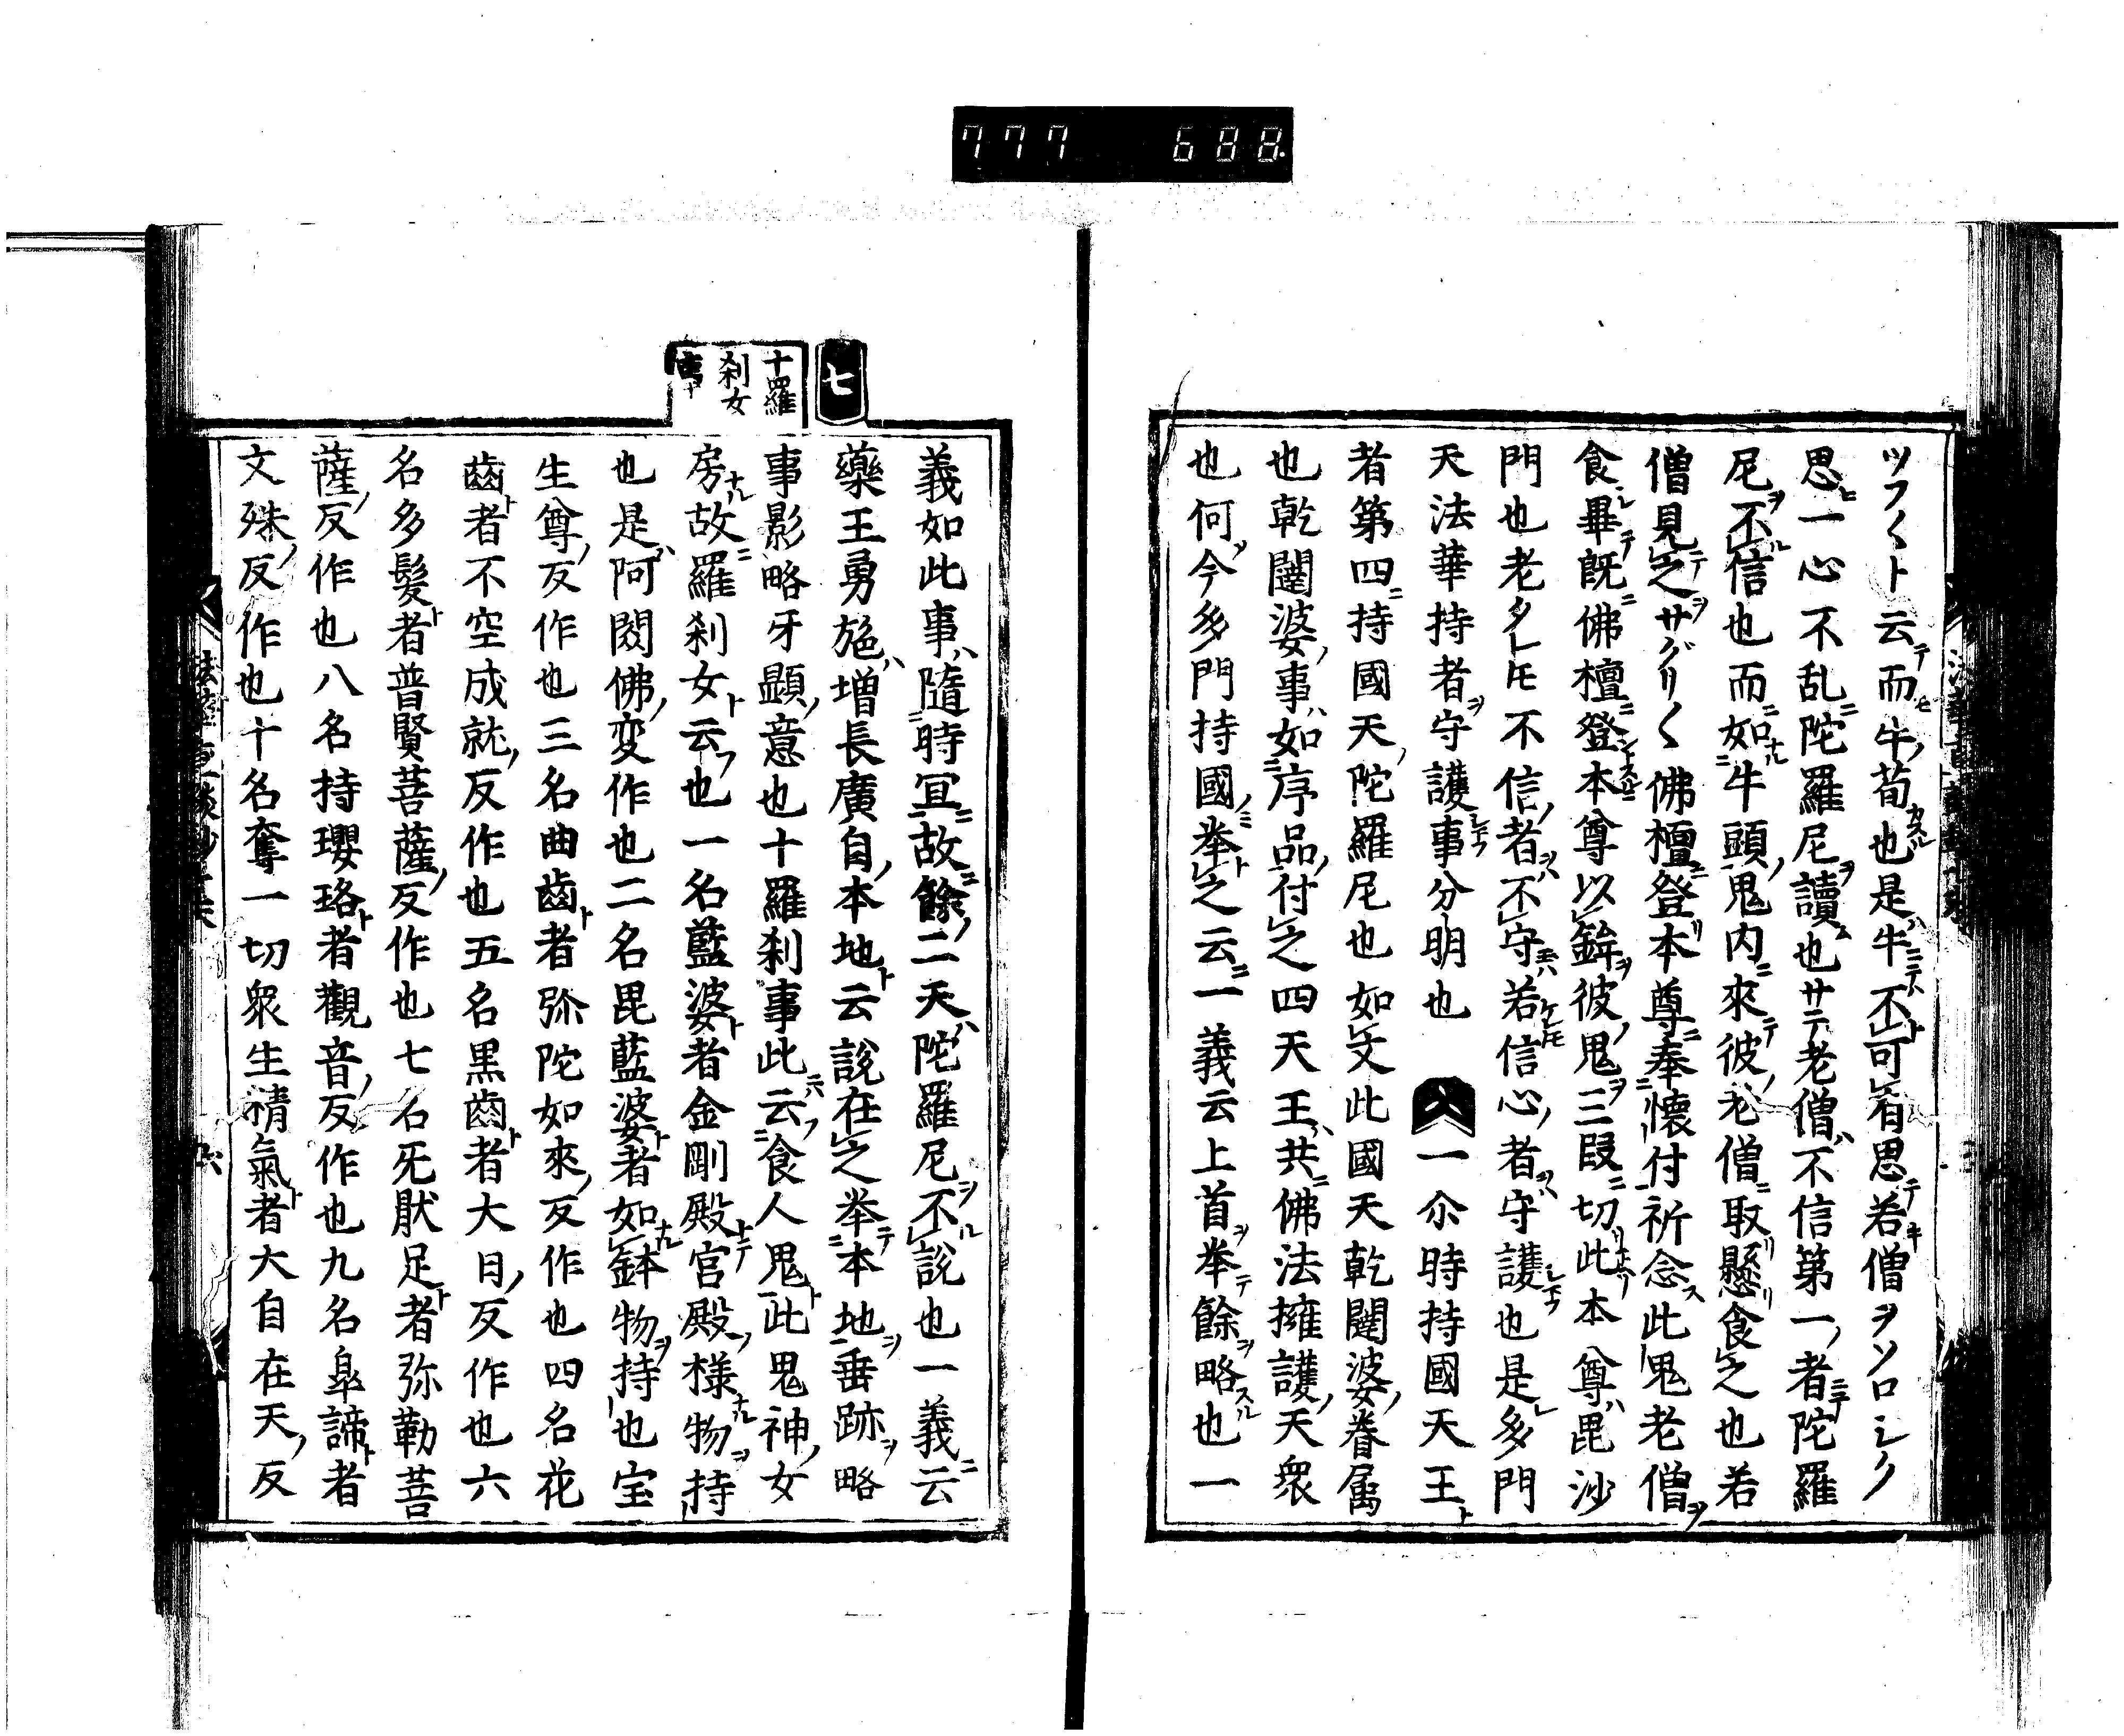 777 688
ツフ〱ト云テ而モ牛ノ荀カスル也是ハ牛ニテ不ト可有思テ若キ僧ヲソロシク
思ヒ一心不乱ニ陀羅尼ヲ讀ム也サテ老僧ハ不信第一ノ者ニテ陀羅
尼ヲ不信ル也而ニ如ナル牛頭ノ鬼内ニ來テ彼ノ老僧ニ取リ懸リ食之也若
僧見テ之ヲサグリ〱佛檀ニ登リ本尊ニ奉懷付祈念ス此鬼老僧ヲ
食レ畢テ既ニ佛檀ニ登本尊以鉾ヲ彼ノ鬼ヲ三段ニ切リ此本尊ハ毘沙
門也老タレモ不信ノ者ヲハ不守玉ハ若ケレモ信心ノ者ヲハ守護也是レ多門
天法華持者ヲ守護事分明也 一尒時持國天王ト
者第四ニ持國天ノ陀羅尼也如文此國天乾闥婆ノ眷属
也乾闥婆ノ事ハ如序品ノ付之四天王ハ共ニ佛法擁護ノ天衆
也何ソ今多門持國ノミ挙ト之云ニ一義云上首ヲ挙テ餘ヲ略スル也一
七
十羅
刹女
事
義如此事ハ隨時冝ニ故ニ餘ノ二天ハ陀羅尼ヲ不ル說也一義ニ云
藥王勇施ハ増長廣自ノ本地ト云說在之挙テ本地ヲ垂跡ヲ略
事影略牙顕ノ意也十羅刹事此云ニハ食人鬼ト此鬼神ノ女
房ナル故ニ羅刹女ト云フ也一名藍婆ト者金剛殿トテ宮殿ノ様ナル物ヲ持
也是ハ阿閦佛ノ変作也二名毘藍婆ト者如ナル鉢物ヲ持也宝
生尊ノ反作也三名曲齒ト者弥陀如來ノ反作也四名花
齒ト者不空成就ノ反作也五名黒齒ト者大日ノ反作也六
名多髮ト者普賢菩薩ノ反作也七名旡猒足ト者弥勒菩
薩ノ反作也八名持瓔珞ト者觀音ノ反作也九名皐諦ト者
文殊ノ反作也十名奪一切衆生精氣ト者大自在天ノ反